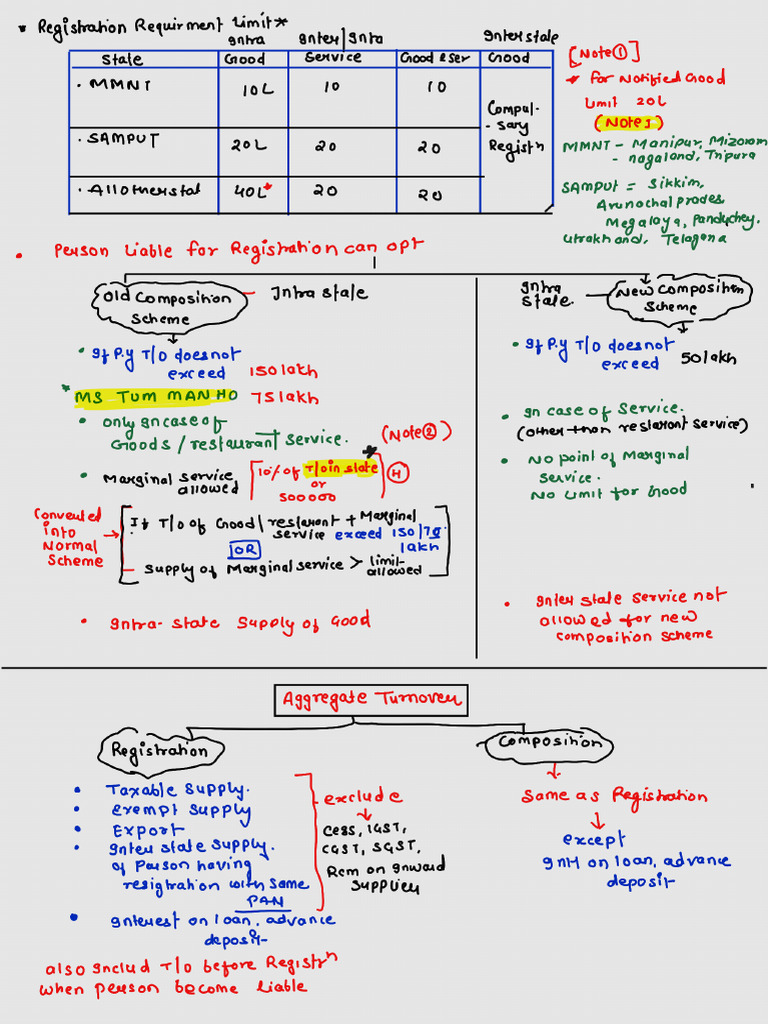 * Registration Requirment Limit*
Intra Inter/Inta Interstate
State Good Service Good & Ser Good
. MMNT 10L 10 10
. SAMPUT 20L 20 20
. All other stat 40L* 20 20
Compul-
-sary
Registn
[Note ①]
* for Notified Good
Limit 20L
(Notes)
MMNT - Manipur, Mizoram
- nagaland, Tripura
SAMPUT = Sikkim,
Arunachal prades,
Megalaya, Panduchey,
Utrakhand, Telagena
. Person Liable for Registration can opt
Old Composition
Scheme
Intra state
• If P.y T/O does not
exceed 150 lakh
* MS TUM MAN HO 75 lakh
• only Incase of
Goods / restaurant service.
(Note ②)
• Marginal service
allowed
10% of T/O in state
or
500000
*
H
Converted
into
Normal
Scheme
If T/O of Good / restarant + Marginal
service exceed 150/75
lakh
OR
– supply of Marginal service > limit
allowed
• Intra-state supply of Good
Intra
state.
New Composition
Scheme
• If P.y T/O does not
exceed 50 lakh
• In case of Service.
(other than restarant service)
• No point of Marginal
Service.
No Limit for Good
• Inter state service not
allowed for new
composition scheme
Aggregate Turnover
Registration
• Taxable Supply.
• Exempt Supply
• Export
• Inter state supply.
of Person having
resigtration with same
PAN
• Interest on loan, advance
deposit
also Includ T/O before Registrn
when person become liable
exclude
Cess, IGST,
CGST, SGST,
Rcm on Inward
Suppliey
Composition
Same as Registration
except
Int on loan, advance
deposit